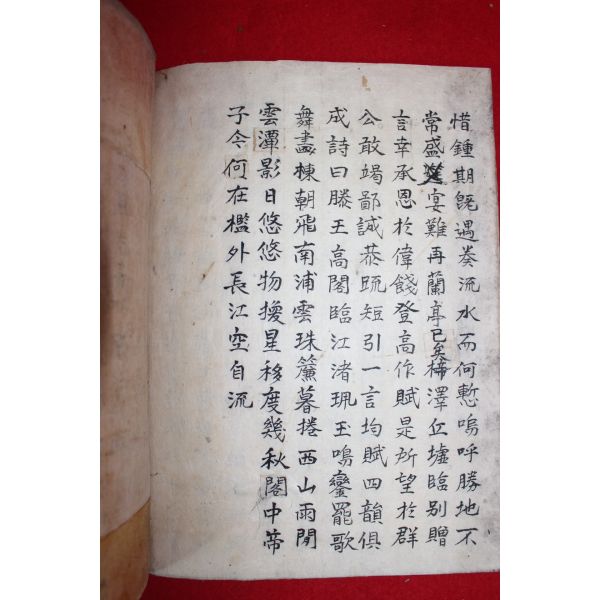 惜鍾期既遇奏流水而何慙嗚呼勝地不
常盛筵宴難再蘭亭已矣梓澤丘墟臨別贈
言幸承恩於偉餞登高作賦是所望於群
公敢竭鄙誠恭疏短引一言均賦四韻俱
成詩曰滕王高閣臨江渚珮玉鳴鑾罷歌
舞畵棟朝飛南浦雲珠簾暮捲西山雨閒
雲潭影日悠悠物換星移度幾秋閣中帝
子今何在檻外長江空自流